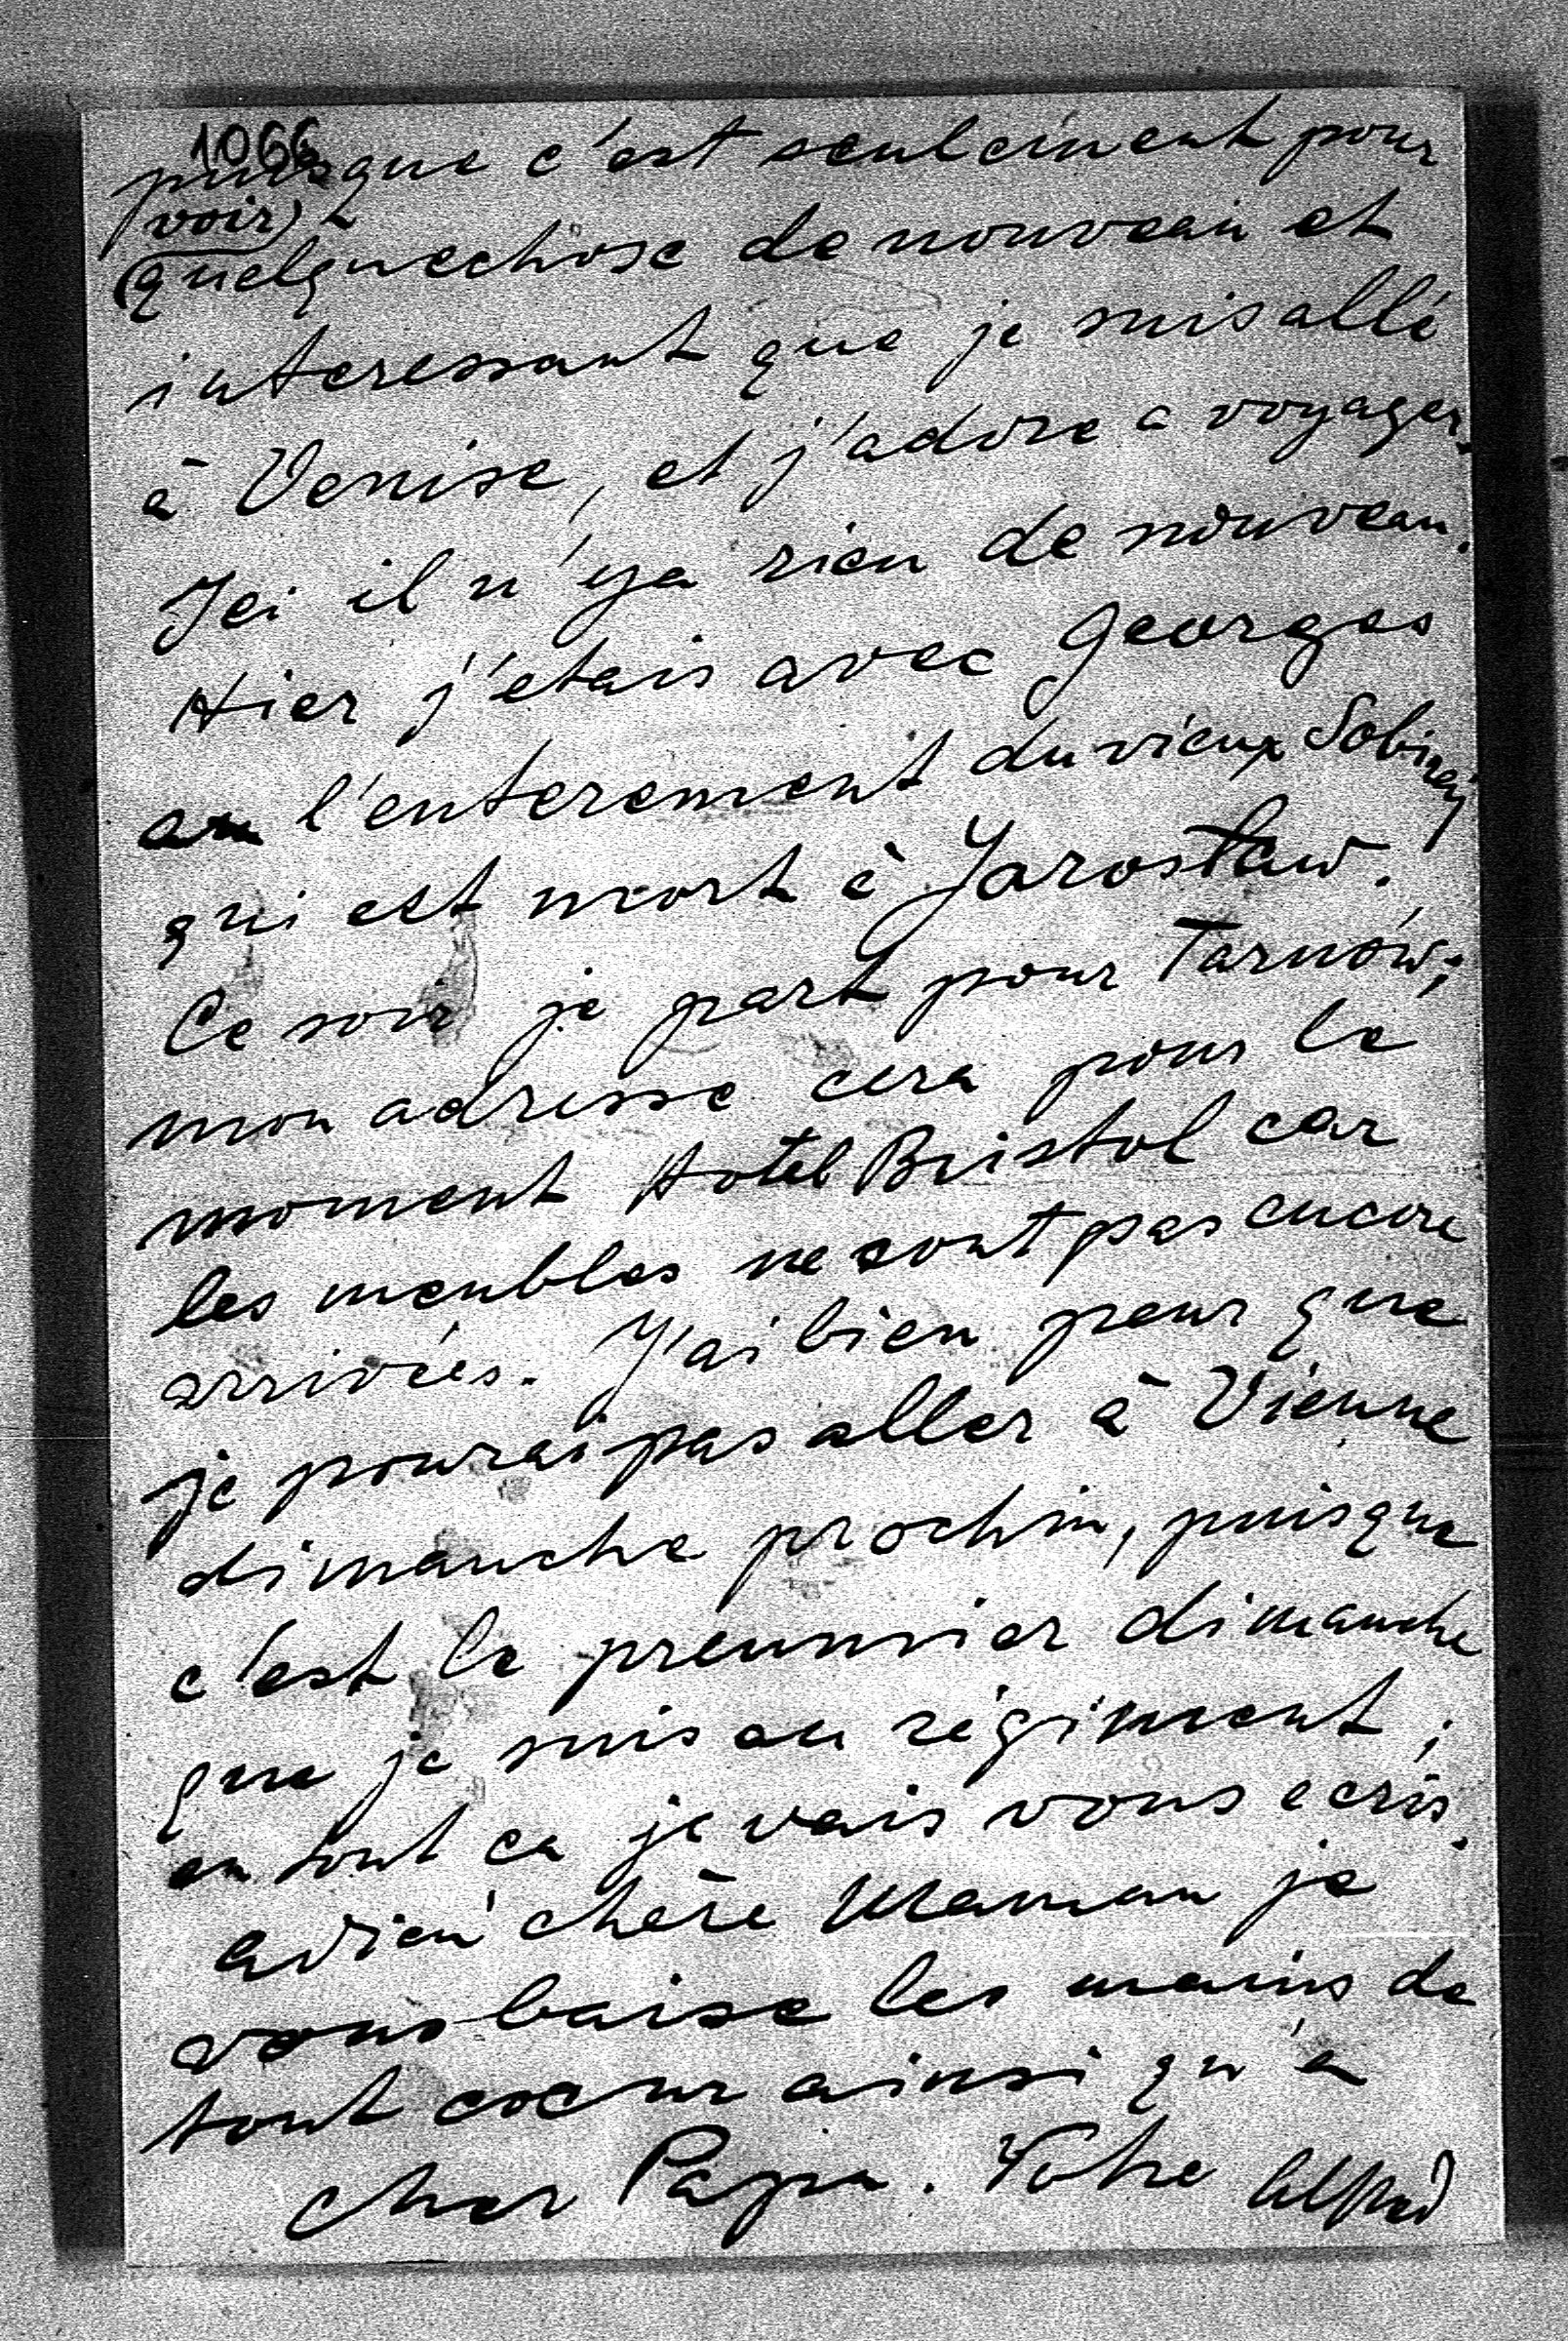 1066
puisque c'est seuleinent pour
(voir)
(quelquechose de nouveau et
interessant que je suis allé
à Venise, et j'adore a voyager.
Ici il n'ya rien de nouveau.
Hier j'etais avec Georges
au l'enterement du vieux
qui est mort à Jarosław.
Ce soir je part pour Tarnów;
mon adresse cera pour le
moment Hotel Bristol car
les meubles ne sont pas encore
arrivées. J'ai bien peur que
je pourai pas aller à Vienne
dimanche prochin, puisque
c'est le premmier dimanche
que je suis au régiment;
en tout ca je vais vous ecris.
Adieu chère Maman je
vous baise les mains de
tout coeur ainsi qu'a
cher Papa. Votre Alfred